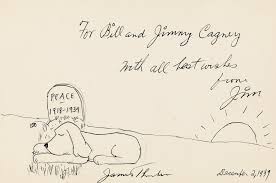 For Bill and Jimmy Cagney
with all best wishes
from
Jim
PEACE
1918-1939
James Thurber
December 2, 1939